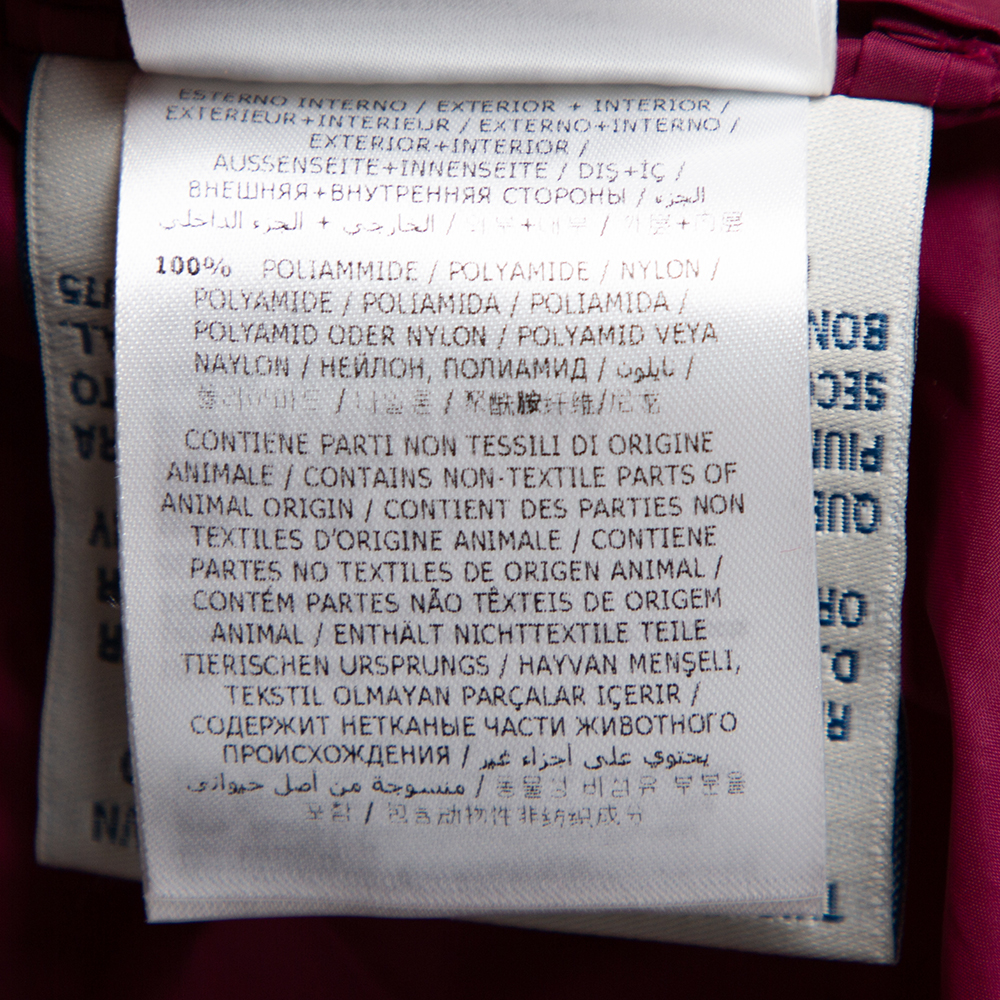 ESTERNO INTERNO / EXTERIOR + INTERIOR /
EXTERIEUR+INTERIEUR / EXTERNO+INTERNO /
EXTERIOR+INTERIOR /
AUSSENSEITE+INNENSEITE / DIŞ+İÇ /
ВНЕШНЯЯ+ВНУТРЕННЯЯ СТОРОНЫ / الجزء
الخارجي + الجزء الداخلي / 외부+내부 / 外层+内层
100% POLIAMMIDE / POLYAMIDE / NYLON /
POLYAMIDE / POLIAMIDA / POLIAMIDA /
POLYAMID ODER NYLON / POLYAMID VEYA
NAYLON / НЕЙЛОН, ПОЛИАМИД / نايلون /
폴리아미드 / 나일론 / 聚酰胺纤维/尼龙
CONTIENE PARTI NON TESSILI DI ORIGINE
ANIMALE / CONTAINS NON-TEXTILE PARTS OF
ANIMAL ORIGIN / CONTIENT DES PARTIES NON
TEXTILES D'ORIGINE ANIMALE / CONTIENE
PARTES NO TEXTILES DE ORIGEN ANIMAL /
CONTÉM PARTES NÃO TÊXTEIS DE ORIGEM
ANIMAL / ENTHÄLT NICHTTEXTILE TEILE
TIERISCHEN URSPRUNGS / HAYVAN MENŞELİ,
TEKSTIL OLMAYAN PARÇALAR IÇERIR /
СОДЕРЖИТ НЕТКАНЫЕ ЧАСТИ ЖИВОТНОГО
ПРОИСХОЖДЕНИЯ / يحتوي على أجزاء غير
منسوجة من أصل حيواني / 동물성 비섬유 부분을
포함 / 包含动物性非纺织成分